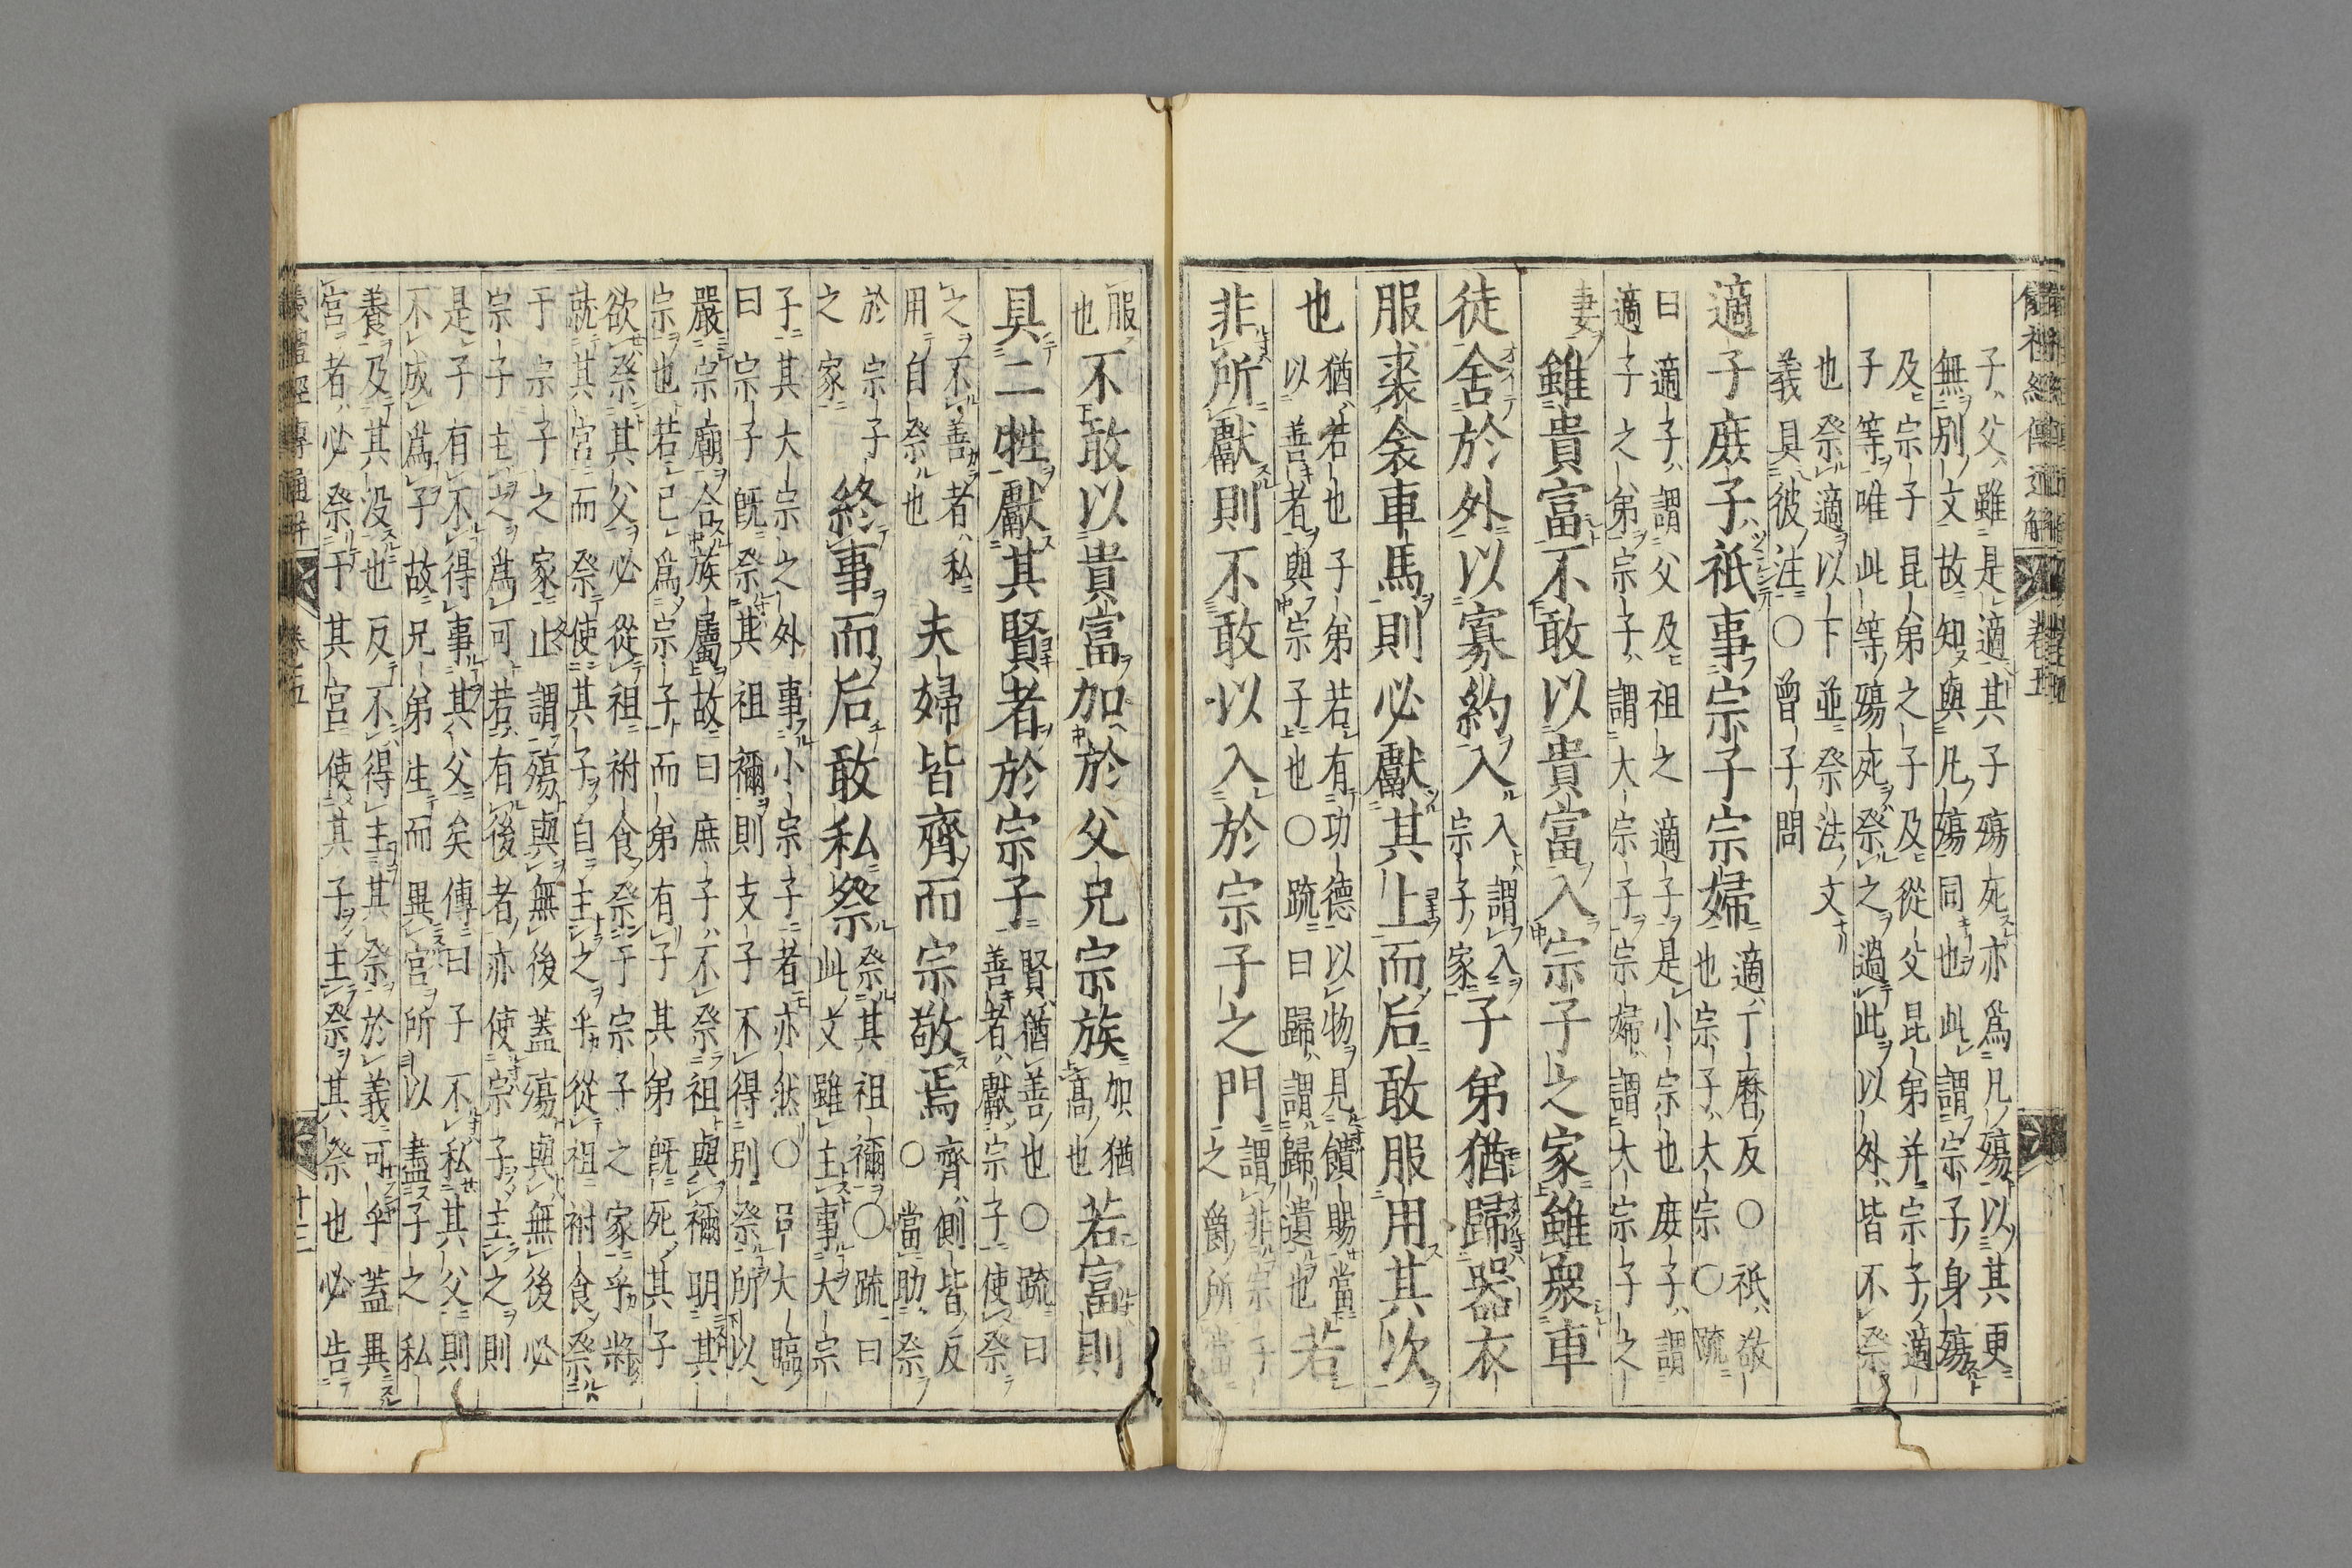 儀禮經傳通解 卷五
子父雖是適其子殤死亦爲凡殤以其更
無別文故知與凡殤同也此謂宗子身殤
及宗子昆弟之子及從父昆弟并宗子適
子等唯此等殤死祭之過此以外皆不祭
也祭適以下並祭法文
義具彼注○曾子問
適子庶子祇事宗子宗婦
適丁暦反○祇敬
也宗子大宗○疏
曰適子謂父及祖之適子是小宗也庶子謂
適子之弟宗子謂大宗子宗婦謂大宗子之
妻
雖貴富不敢以貴富入宗子之家雖衆車
徒舍於外以寡約入
入謂入
宗子家
子弟猶歸器衣
服裘衾車馬則必獻其上而后敢服用其次
也
猶若也子弟若有功德以物見饋賜當
以善者與宗子也○疏曰歸謂歸遺也
若
非所獻則不敢以入於宗子之門
謂非宗子
之爵所當
服
也
不敢以貴富加於父兄宗族
加猶
高也
若富則
具二牲獻其賢者於宗子
賢猶善也○疏曰
善者獻宗子使祭
之不善者私
用自祭也
夫婦皆齊而宗敬焉
齊側皆反
○當助祭
於宗子
之家
終事而后敢私祭
祭其祖禰○疏曰
此文雖主事大宗
子其大宗之外事小宗子者亦然○呂大臨
曰宗子既祭其祖禰則支子不得別祭所以
嚴宗廟合族屬故曰庶子不祭祖與禰明其
宗也若已爲宗子而弟有子其弟既死其子
欲祭其父必從祖祔食祭于宗子之家乎將
就其宮而祭使其子自主之乎從祖祔食祭
于宗子之家止謂殤與無後蓋殤與無後必
宗子主之爲可若有後者亦使宗子主之則
是子有不得事其父矣傳曰子不私其父則
不成爲子故兄弟生而異宮所以盡子之私
養及其没也反不得主其祭於義可乎蓋異
宮者必祭于其宮使其子主祭其祭也必告
儀禮經傳通解 卷之五 十三